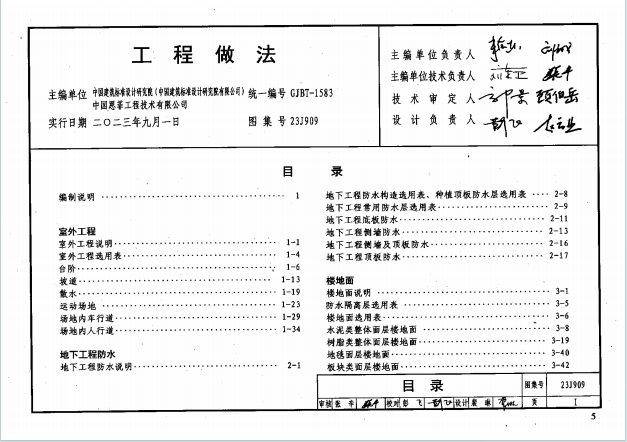 工程做法
主编单位 中国建筑标准设计研究院(中国建筑标准设计研究院有限公司) 统一编号 GJBT-1583
中国恩菲工程技术有限公司
实行日期 二〇二三年九月一日 图集号 23J909
主编单位负责人
主编单位技术负责人
技术审定人
设计负责人
目 录
编制说明 1
室外工程
室外工程说明 1-1
室外工程选用表 1-4
台阶 1-6
坡道 1-13
散水 1-19
运动场地 1-23
场地内车行道 1-29
场地内人行道 1-34
地下工程防水
地下工程防水说明 2-1
地下工程防水构造选用表、种植顶板防水层选用表 2-8
地下工程常用防水层选用表 2-9
地下工程底板防水 2-11
地下工程侧墙防水 2-13
地下工程侧墙及顶板防水 2-16
地下工程顶板防水 2-17
楼地面
楼地面说明 3-1
防水隔离层选用表 3-5
楼地面选用表 3-6
水泥类整体面层楼地面 3-8
树脂类整体面层楼地面 3-19
地毯面层楼地面 3-40
板块类面层楼地面 3-42
目录 图集号 23J909
审核 张 校对 彭飞 设计 页 I
5